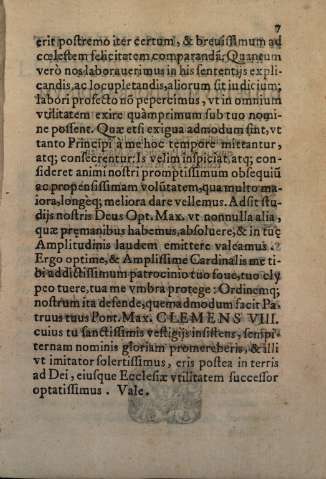 7
erit postremo iter certum, & breuissimum ad
cœlestem felicitatem comparandā. Quantum
verò nos laborauerimus in his sententijs expli-
candis, ac locupletandis, aliorum sit iudicium;
labori profecto nō pepercimus, vt in omnium
vtilitatem exire quàmprimum sub tuo nomi-
ne possent. Quæ etsi exigua admodum sint, vt
tanto Principi à me hoc tempore mittantur,
atq; consecrentur: Is velim inspiciat, atq; con-
sideret animi nostri promptissimum obsequiū
ac propensissimam volūtatem, qua multo ma-
iora, longeq; meliora dare vellemus. Adsit stu-
dijs nostris Deus Opt. Max. vt nonnulla alia,
quæ præmanibus habemus, absoluere, & in tuę
Amplitudinis laudem emittere valeamus.
Ergo optime, & Amplissime Cardinalis me ti-
bi addictissimum patrocinio tuo foue, tuo cly
peo tuere, tua me vmbra protege: Ordinemq;
nostrum ita defende, quemadmodum facit Pa-
truus tuus Pont. Max. CLEMENS VIII.
cuius tu sanctissimis vestigijs insistens, sempi-
ternam nominis gloriam promereberis, & illi
vt imitator solertissimus, eris postea in terris
ad Dei, eiusque Ecclesiæ vtilitatem successor
optatissimus. Vale.